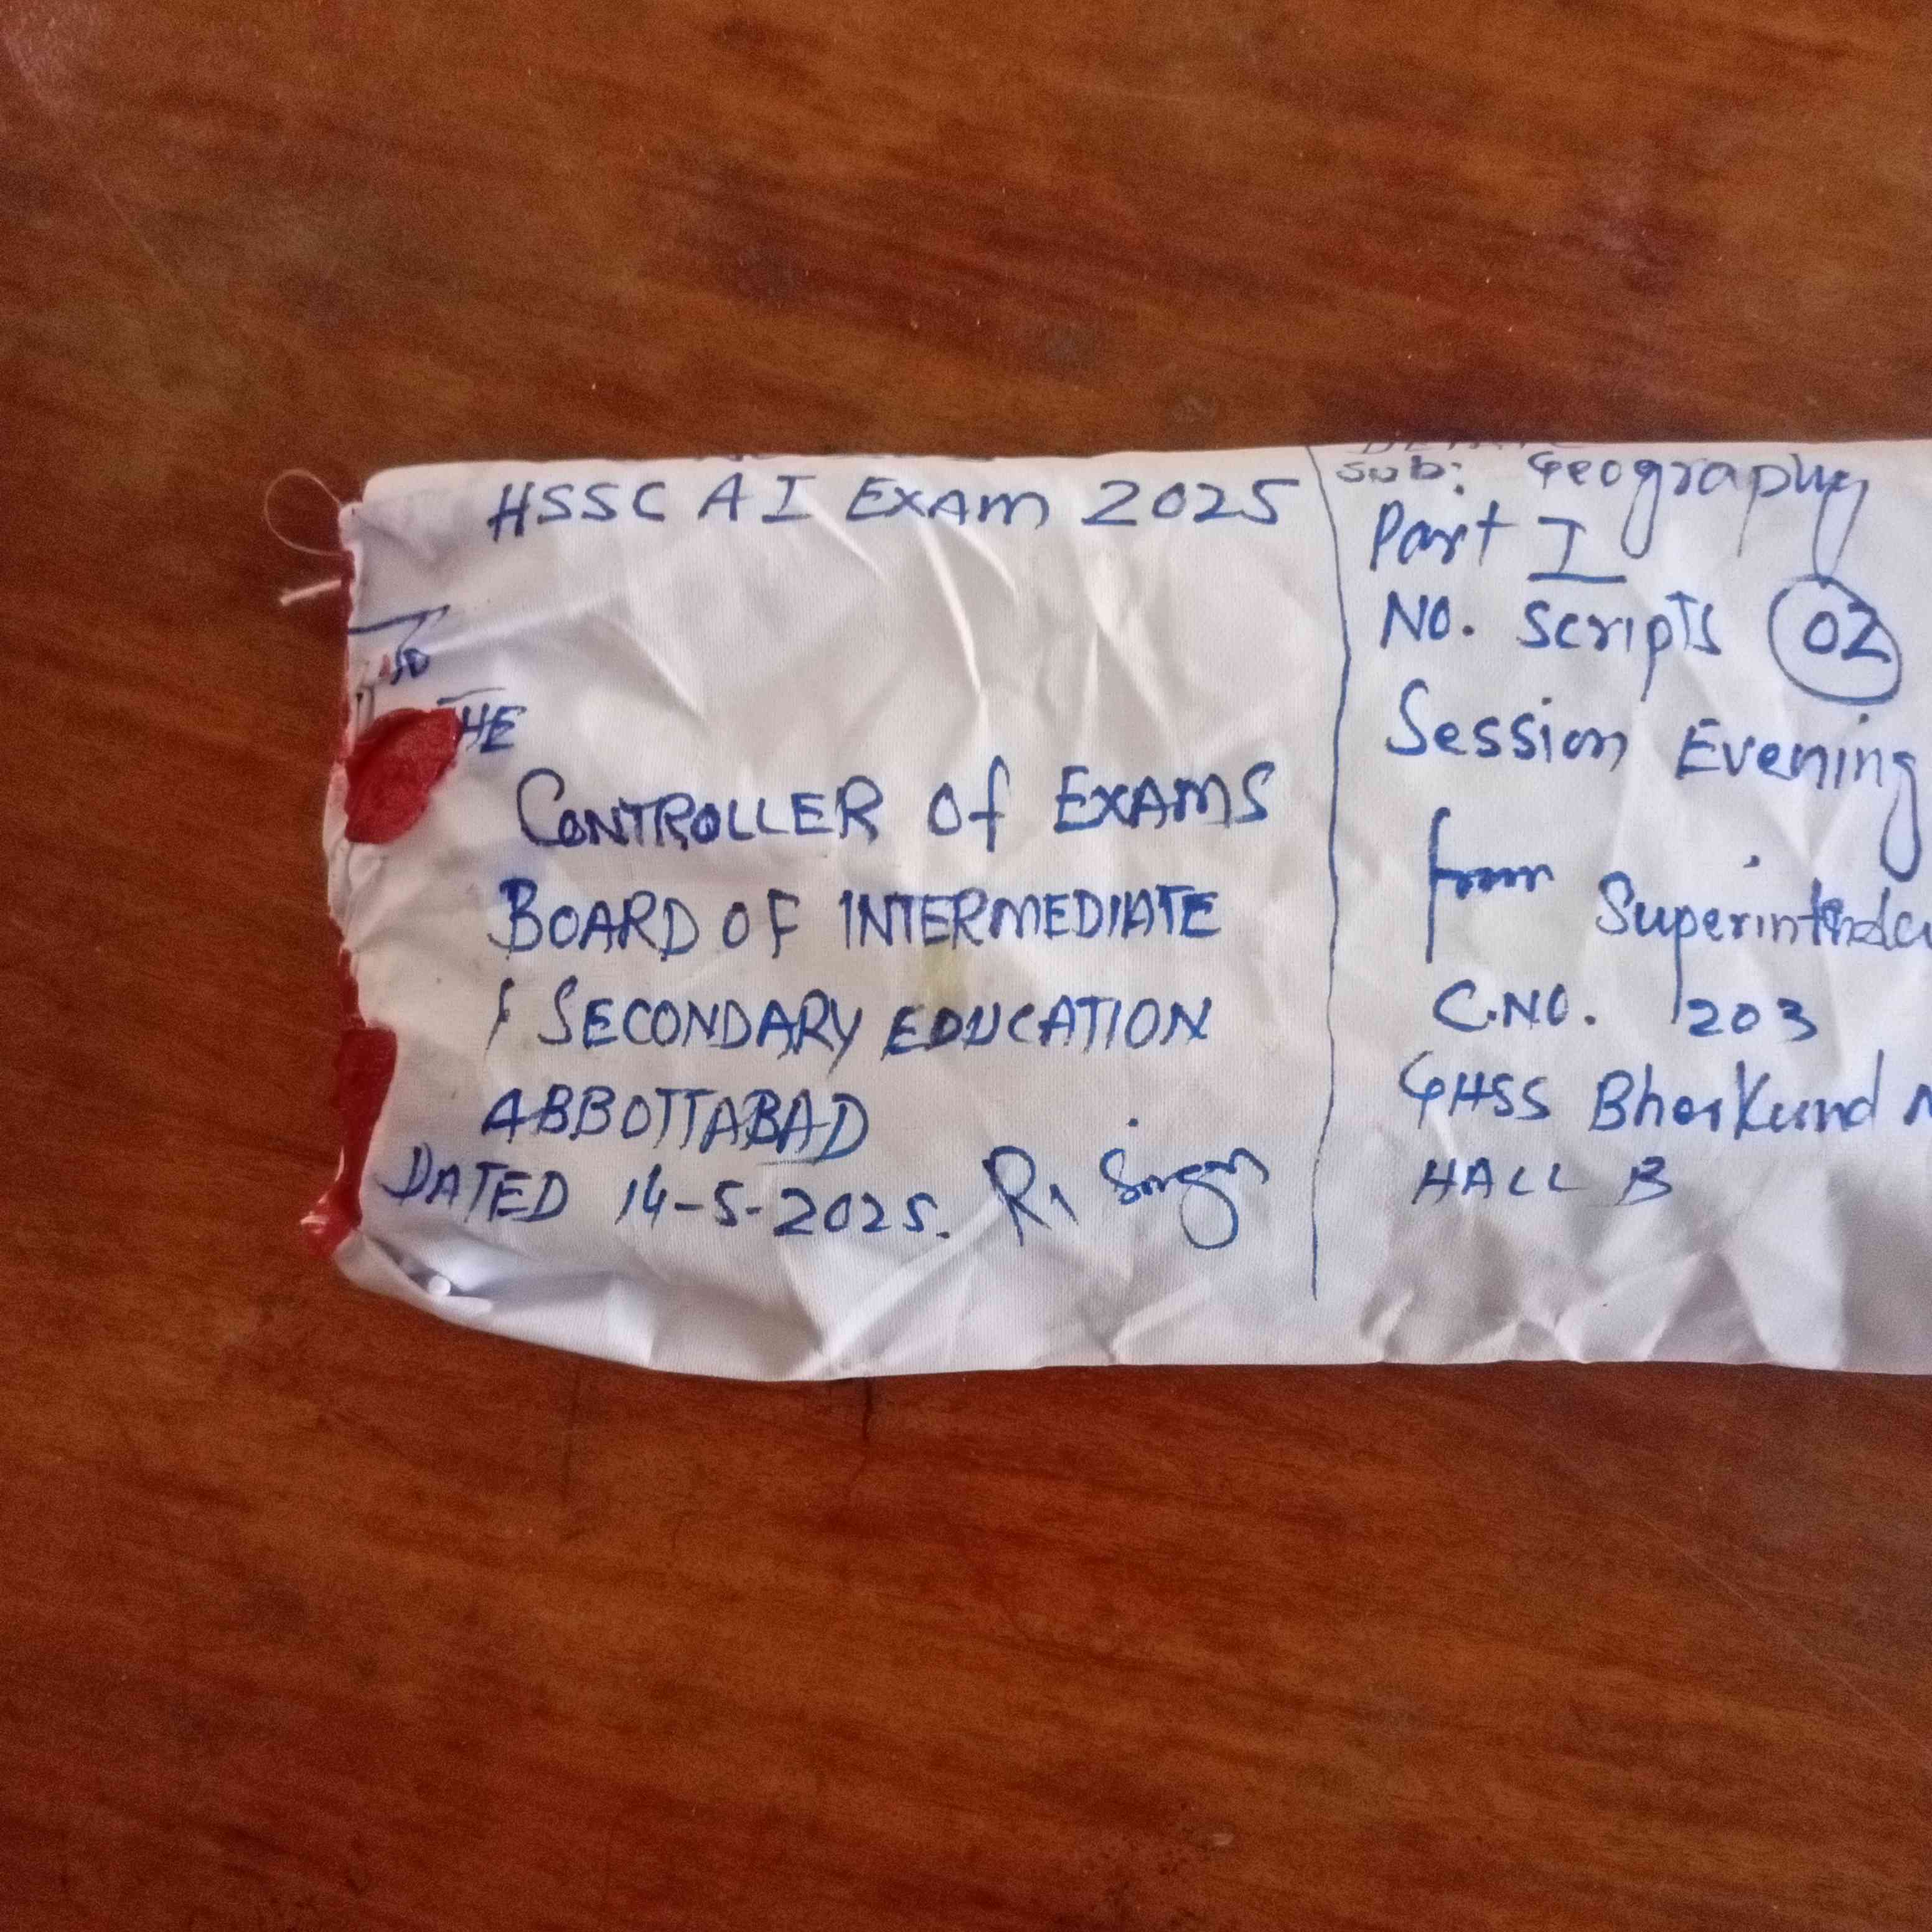 HSSC A I EXAM 2025
To
THE
CONTROLLER Of EXAMS
BOARD OF INTERMEDIATE
& SECONDARY EDUCATION
ABBOTTABAD
DATED 14-5-2025.
Sub: Geography
Part I
NO. Scripts 02
Session Evening
from Superintenden
C.NO. 1203
GHSS Bherkund
HALL B